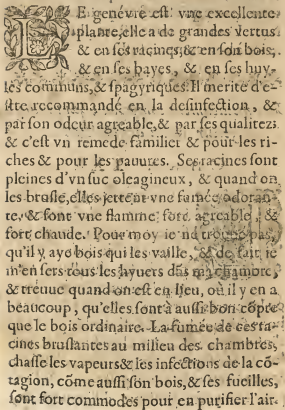 LE genévre est vne excellente
plante, elle a de grandes vertus
& en ses racines, & en son bois,
& en ses bayes, & en ses huy-
les communs, & spagyriques. Il merite d'e-
stre recommandé en la desinfection, &
par son odeur agreable, & par ses qualitez:
& c'est vn remede familier & pour les ri-
ches & pour les pauures. Ses racines sont
pleines d'vn suc oleagineux, & quand on
les brusle, elles jettent vne fumée odoran-
te, & sont vne flamme fort agreable, &
fort chaude. Pour moy ie nd trouue pas,
qu'il y aye bois qui les vaille, & de fait ie
m'en sers tous les hyuers dãs ma chambre,
& treuue quand on est en lieu, où il y en a
beaucoup, qu'elles sont à aussi bon cõpte
que le bois ordinaire. La fumée de ces ra-
cines bruslantes au milieu des chambres,
chasse les vapeurs & les infections de la cõ-
tagion, cõme aussi son bois, & ses fueilles,
sont fort commodes pour en purifier l'air.